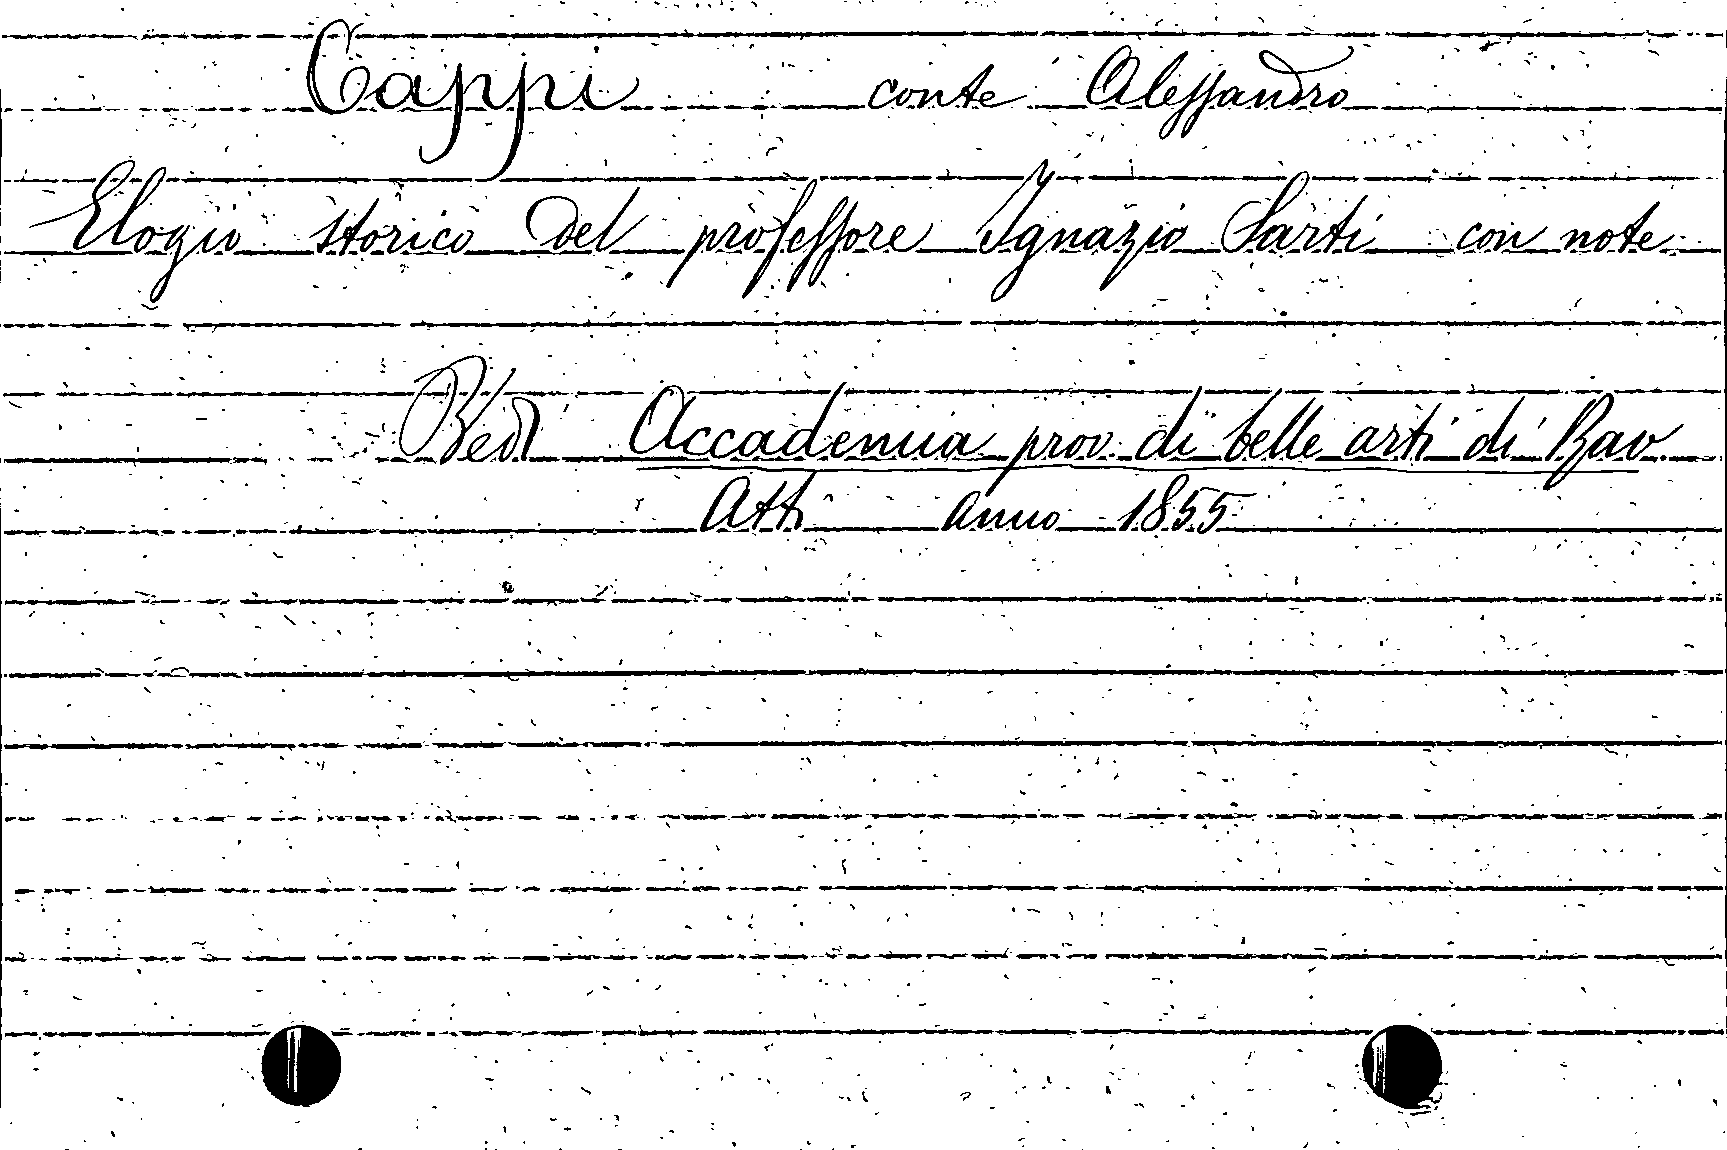 Cappi conte Alessandro
Elogio storico del professore Ignazio Sarti con note
Vedi Accademia prov. di belle arti di Rav.
Atti anno 1855